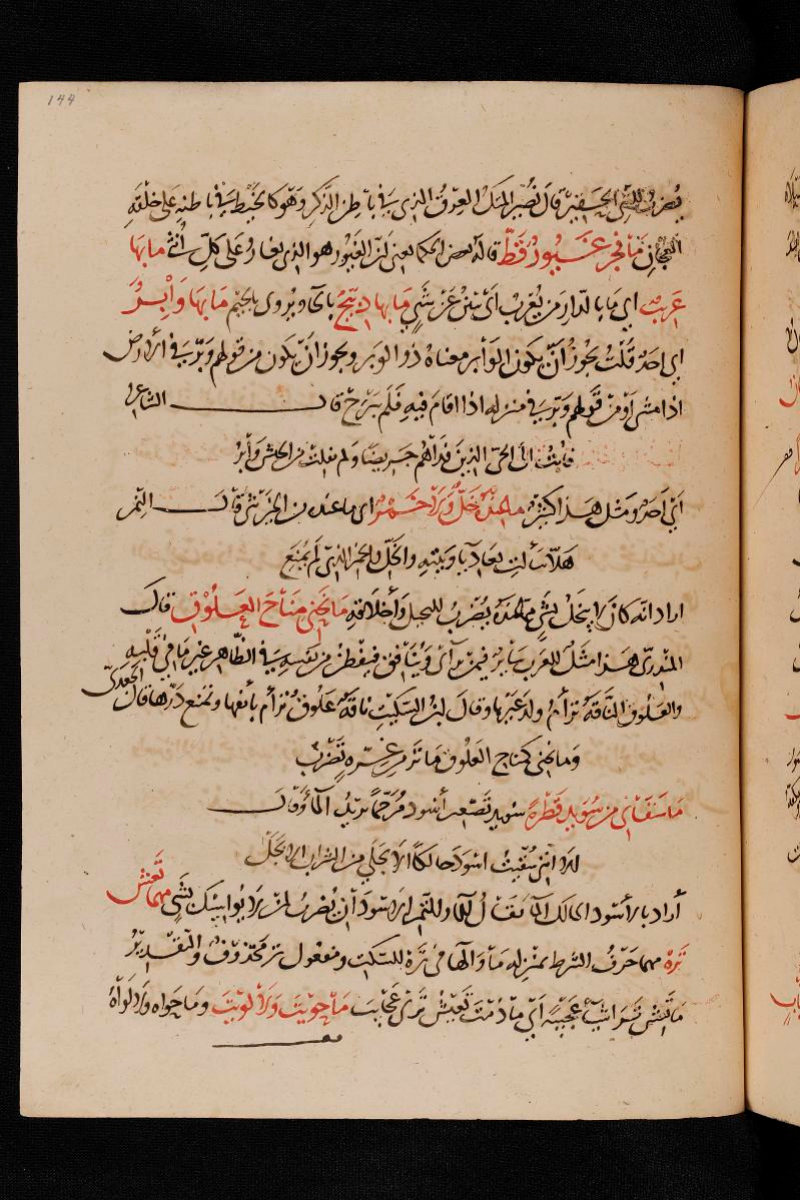 144
يضرب للشيء الحقير قال نُصَير المتك العِرق الذي في باطن الذكر وهو كالخيط في باطنه على خلقة
العجان ما فجر غيور قط قاله بعض الحكماء يعني أن الغيور هو الذي يغار على كل أنثى ما بها
عريب اي ما بالدار من يُعْرِب أي يبين عن شيء ما بها دبيج بالحاء ويروى بالجيم ما بها وابر
اي احد قلت يجوز أن يكون الوابر معناه ذو الوبر ويجوز أن يكون من قولهم وبّر في الارض
اذا مشى أو من قولهم وبّر في منزله اذا اقام فيه فلم يبرح قال الشاعر
فابت الى الحي الذين وراءهم جريضا ولم يفلت من الجيش وابر
اي احد ومثل هذا كثير ما عنده خل ولا خمر اي ما عنده من الخير شيء قال النمر
هلا سألت بعاديا وبيته والخل والخمر الذي لم يمنع
اراد انه كان لا يبخل بشيء مما عنده يضرب للبخيل وأخلاقه ما نحني مناح العلوق قال
المنذري هذا مثل للعرب سائر فيمن يرائي وينافق فيعطي من نفسه في الظاهر غير ما في قلبه
والعلوق الناقة ترأم ولد غيرها وقال ابن السكيت ناقة علوق ترأم بأنفها وتمنع درّها قال الجعدي
وما نحني كمناح العلوق ما تر من غرة تضرب
ما سقاني من سويد قطرة سويد تصغير أسود مرخما يريد الماء قال
الا انني سقيت اسود حالكا الا بجلي من الشراب الا بجل
أراد بالأسود الحالك الماء يقال للماء وللتمر الاسودان يضرب لمن لا يواسيك بشيء مهما تعش
تره مهما حرف الشرط بمنزلة ما والهاء في تره للسكت ومفعول تر محذوف والتقدير
ما تعش تر اشياء عجيبة أي ما دمت تعيش ترى عجايب ما حويت ولا لويت وما حواه ولا لواه